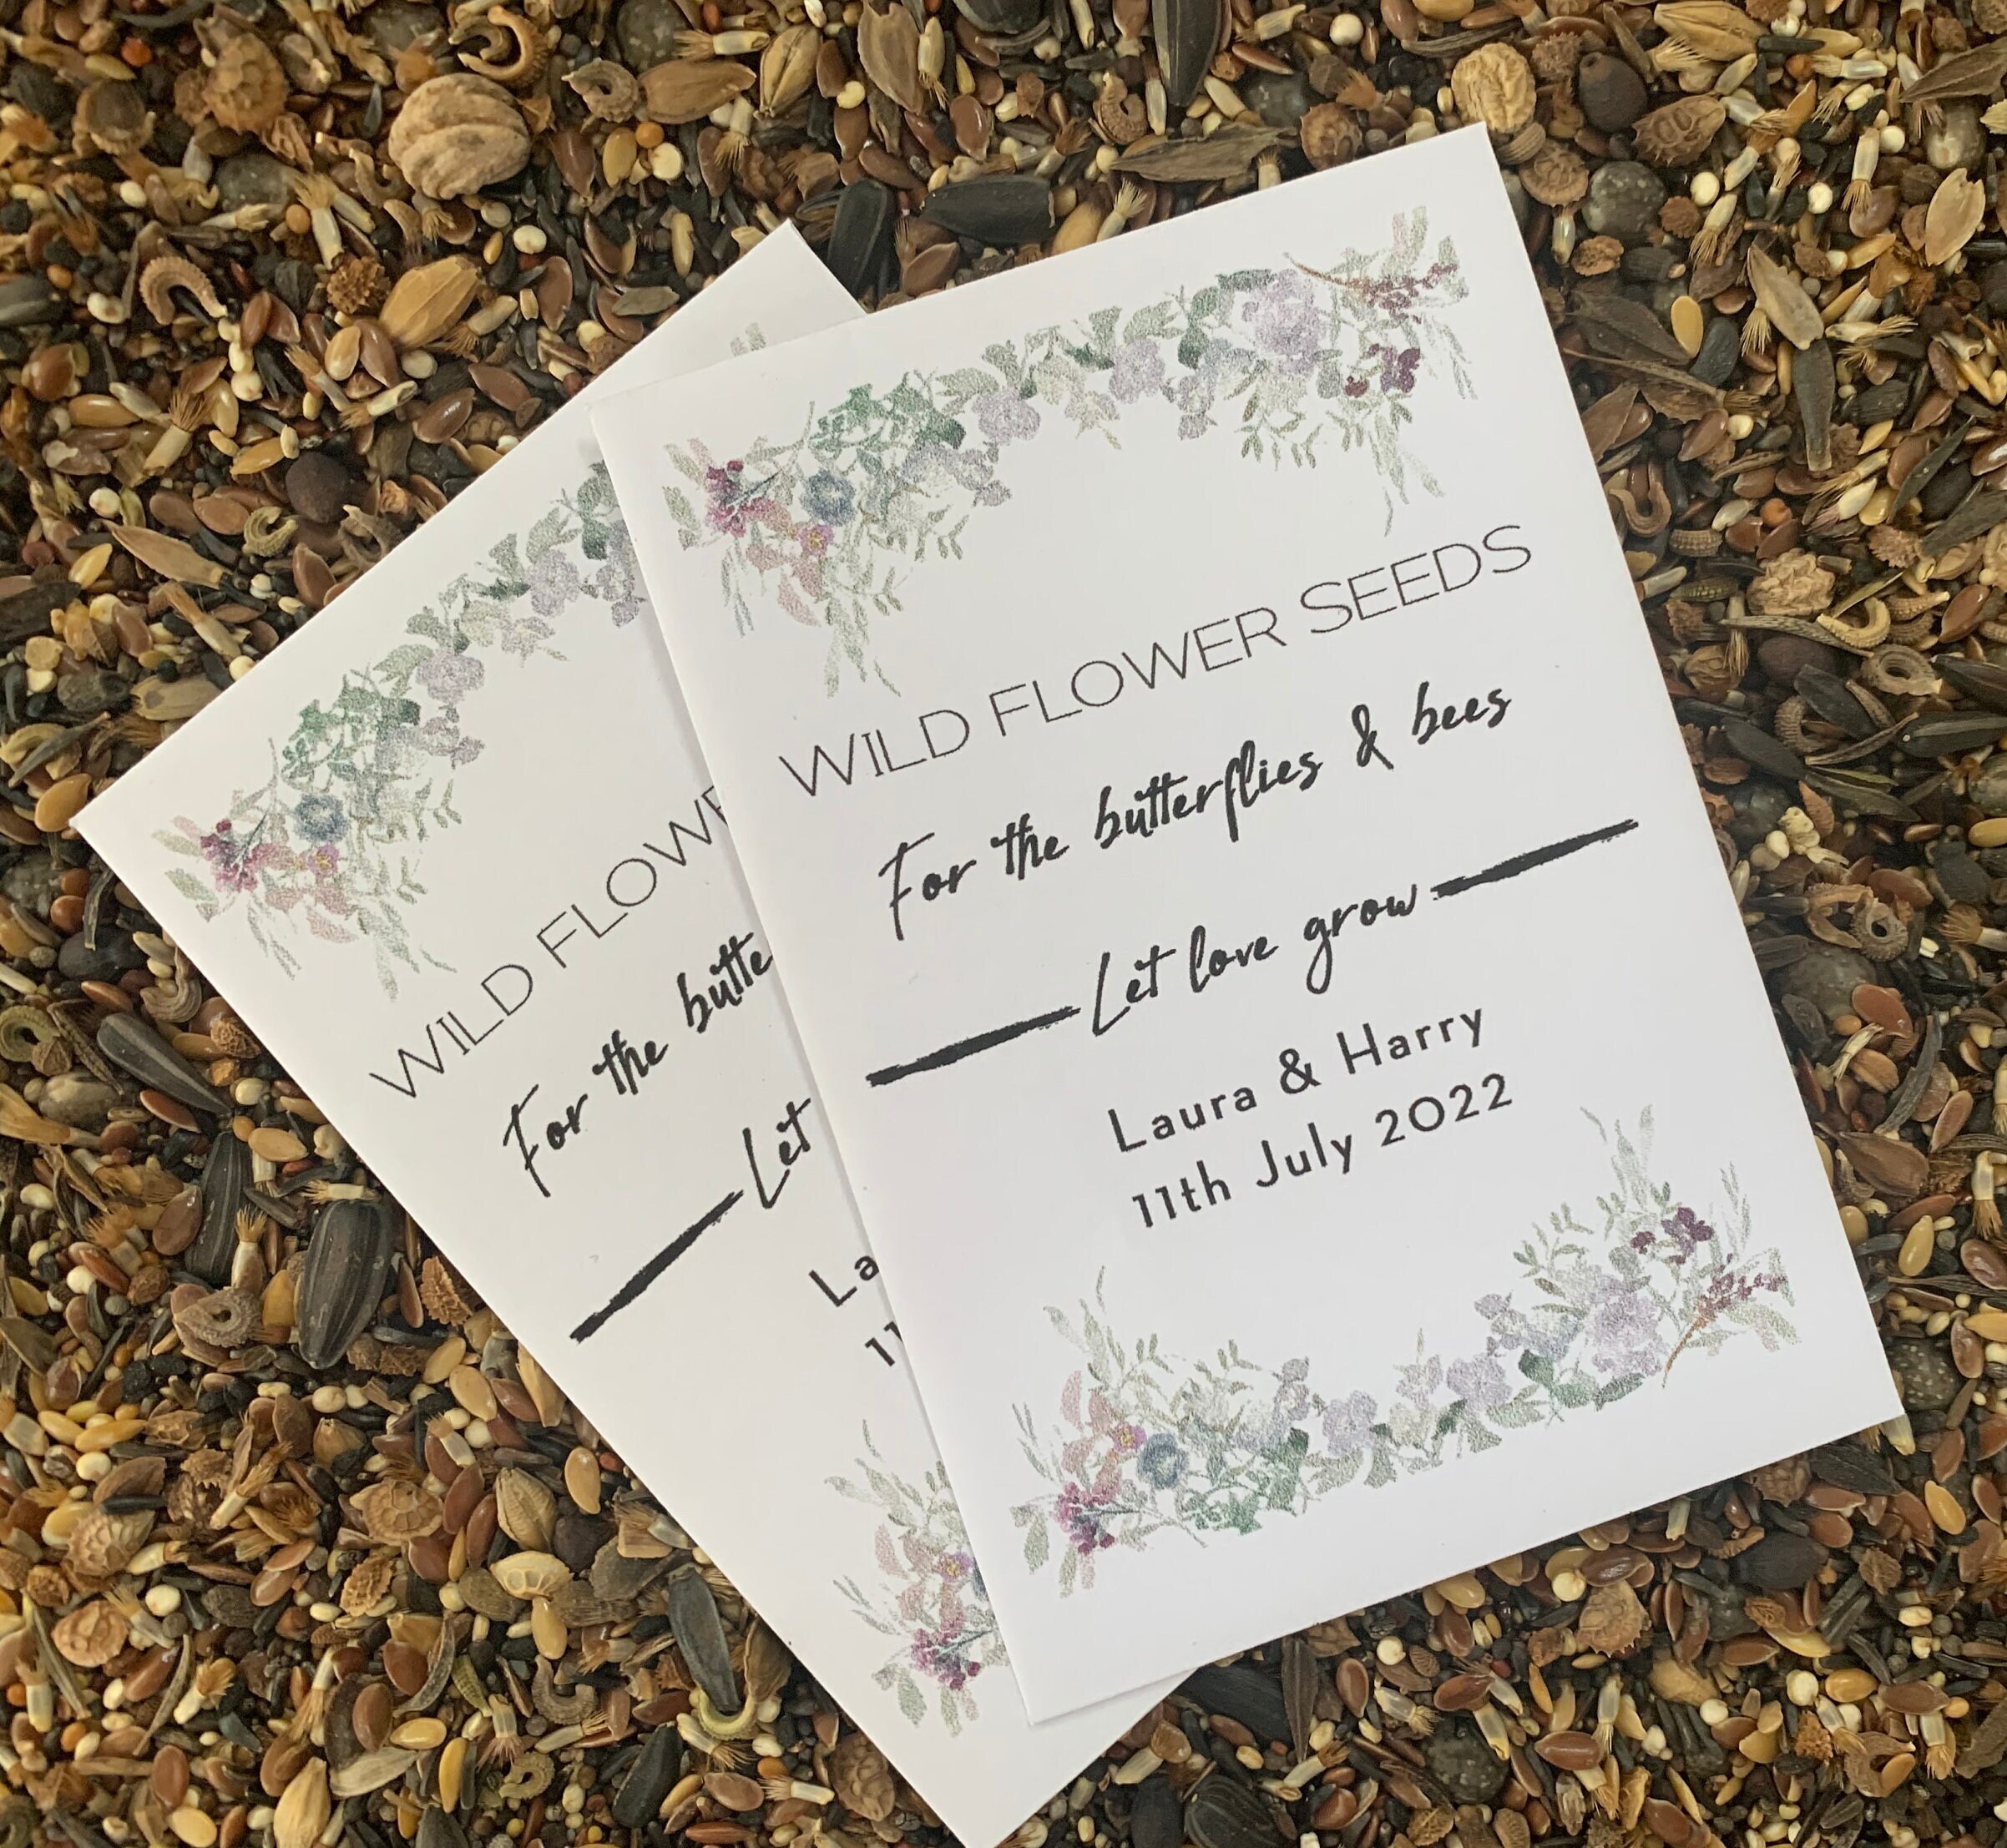 WILD FLOWER SEEDS
For the butterflies & bees
Let love grow
Laura & Harry
11th July 2022
WILD FLOWE
For the butte
Let
La
11